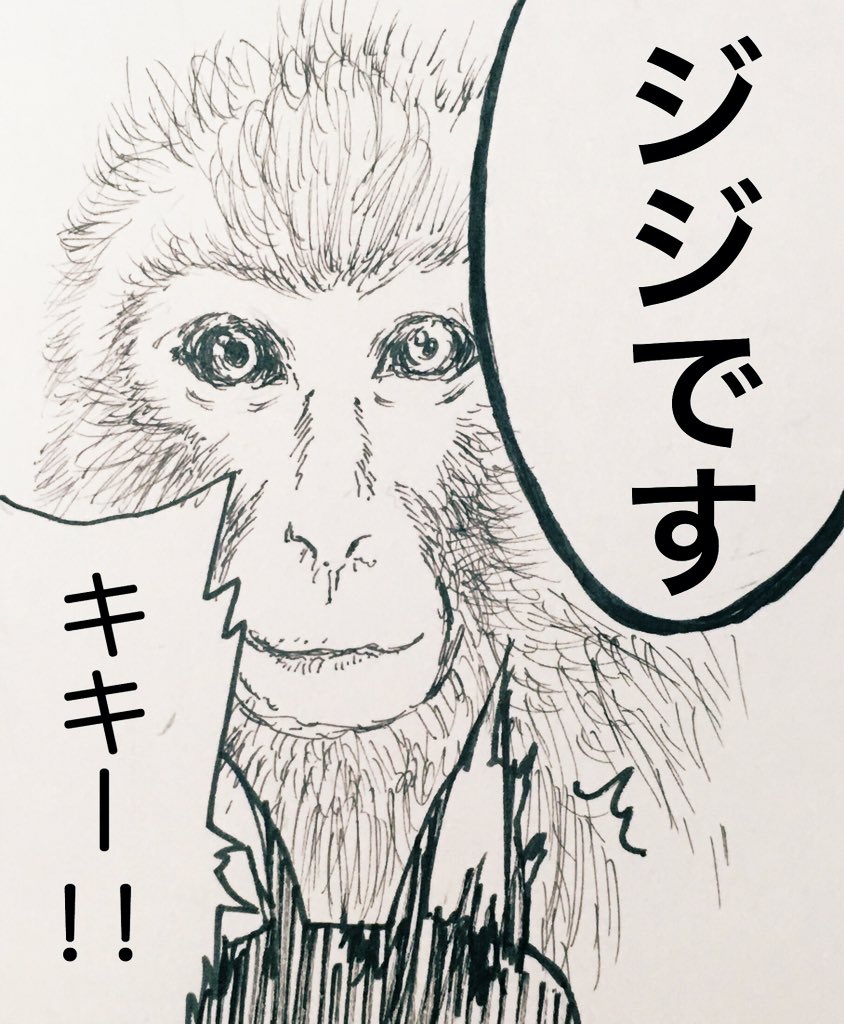 ジジです
キキー!!